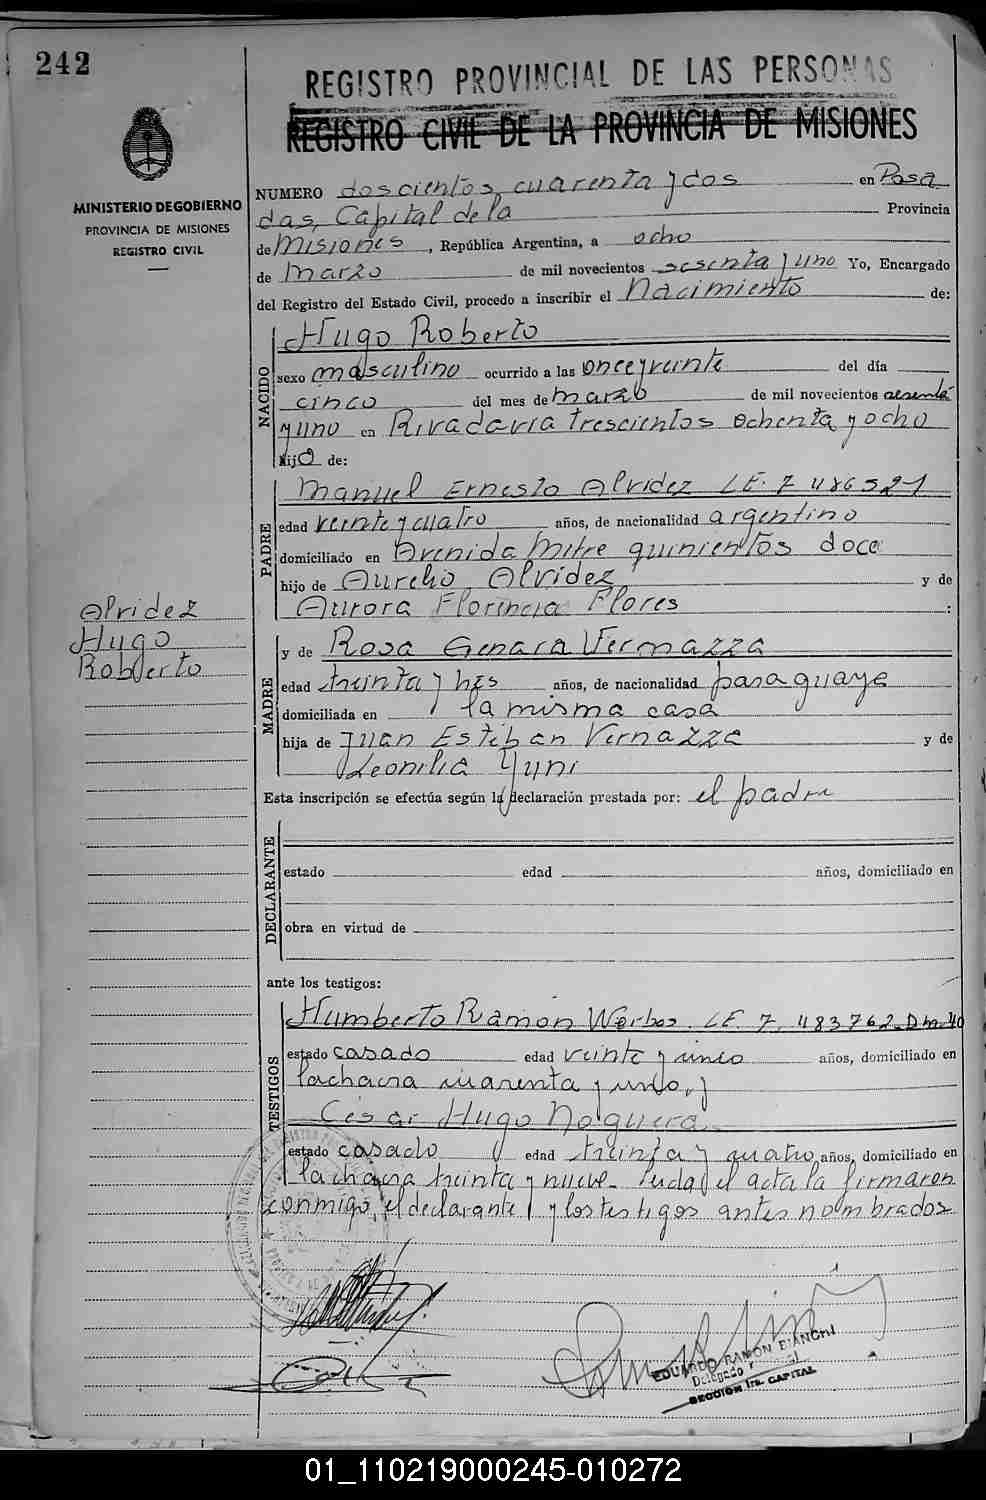 242
REGISTRO PROVINCIAL DE LAS PERSONAS
REGISTRO CIVIL DE LA PROVINCIA DE MISIONES
MINISTERIO DE GOBIERNO
PROVINCIA DE MISIONES
REGISTRO CIVIL
NUMERO doscientos cuarenta y dos en Posa
das, Capital de la Provincia
de Misiones, República Argentina, a ocho
de Marzo de mil novecientos sesenta y uno Yo, Encargado
del Registro del Estado Civil, procedo a inscribir el Nacimiento de:
NACIDO
Hugo Roberto
sexo masculino ocurrido a las once y veinte del día
cinco del mes de marzo de mil novecientos sesenta
y uno en Rivadavia trescientos ochenta y ocho
hijo de:
PADRE
Manuel Ernesto Alvidez L.E. 7486521
edad veinte y cuatro años, de nacionalidad argentino
domiciliado en Avenida Mitre quinientos doce
hijo de Aurelio Alvidez y de
Aurora Florencia Flores :
Alvidez
Hugo
Roberto
MADRE
y de Rosa Genara Vernazza
edad treinta y tres años, de nacionalidad paraguaya
domiciliada en la misma casa
hija de Juan Esteban Vernazza y de
Leonilia Yuni
Esta inscripción se efectúa según la declaración prestada por: el padre
DECLARANTE
estado edad años, domiciliado en
obra en virtud de
ante los testigos:
TESTIGOS
Humberto Ramon Werbos. L.E. 7.483762 Dm. 40
estado casado edad veinte y cinco años, domiciliado en
la chacra cuarenta y uno, y
Cesar Hugo Noguera
estado casado edad treinta y cuatro años, domiciliado en
la chacra treinta y nueve. Leida el acta la firmaron
conmigo, el declarante y los testigos antes nombrados
EDUARDO RAMON BIANCHI
Delegado
SECCION 1ra. CAPITAL
01_110219000245-010272